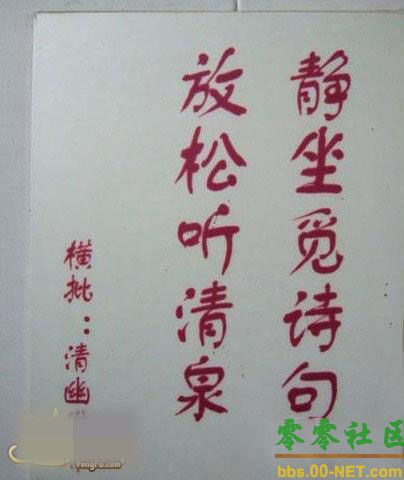 静坐觅诗句
放松听清泉
横批：清幽
PengFu.com
零零社区
bbs.00-NET.com